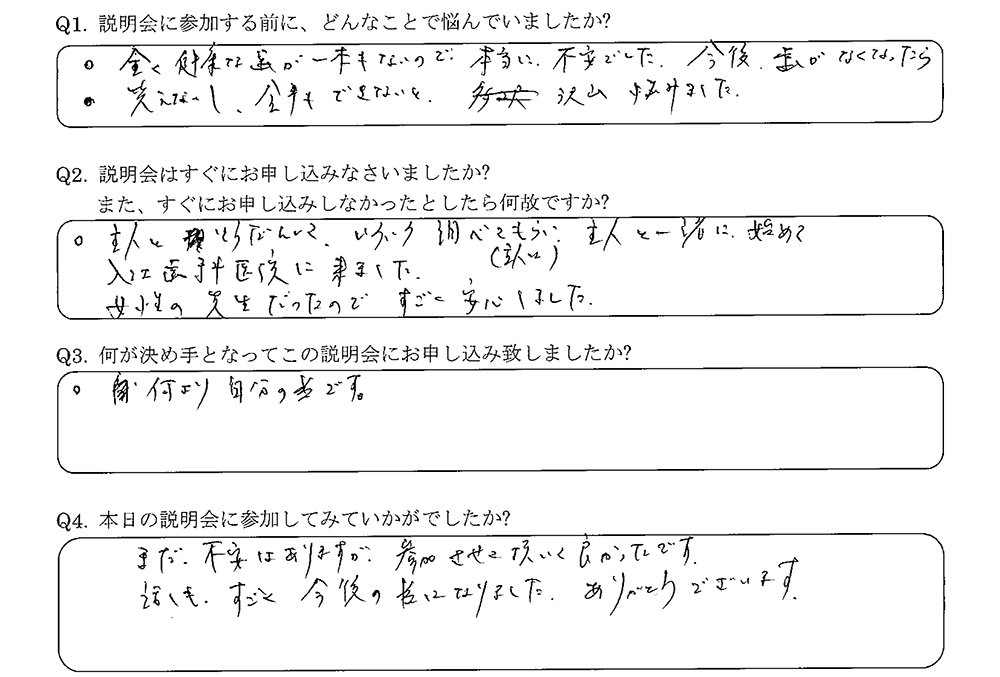 Q1. 説明会に参加する前に、どんなことで悩んでいましたか?
全く健康な歯が一本もないので、本当に、不安でした。今後、歯がなくなったら
笑えないし、食事もできないと、沢山悩みました。
Q2. 説明会はすぐにお申し込みなさいましたか?
また、すぐにお申し込みしなかったとしたら何故ですか?
主人とそうだんして、いろいろ調べてもらい、主人と一緒に、始めて
(主人に)
入江歯科医院に来ました。
女性の先生だったので すごく安心しました。
Q3. 何が決め手となってこの説明会にお申し込み致しましたか?
何より自分の為です。
Q4. 本日の説明会に参加してみていかがでしたか?
まだ、不安はありますが、参加させて頂いて良かったです。
話しも、すごく今後の為になりました。ありがとうございます。